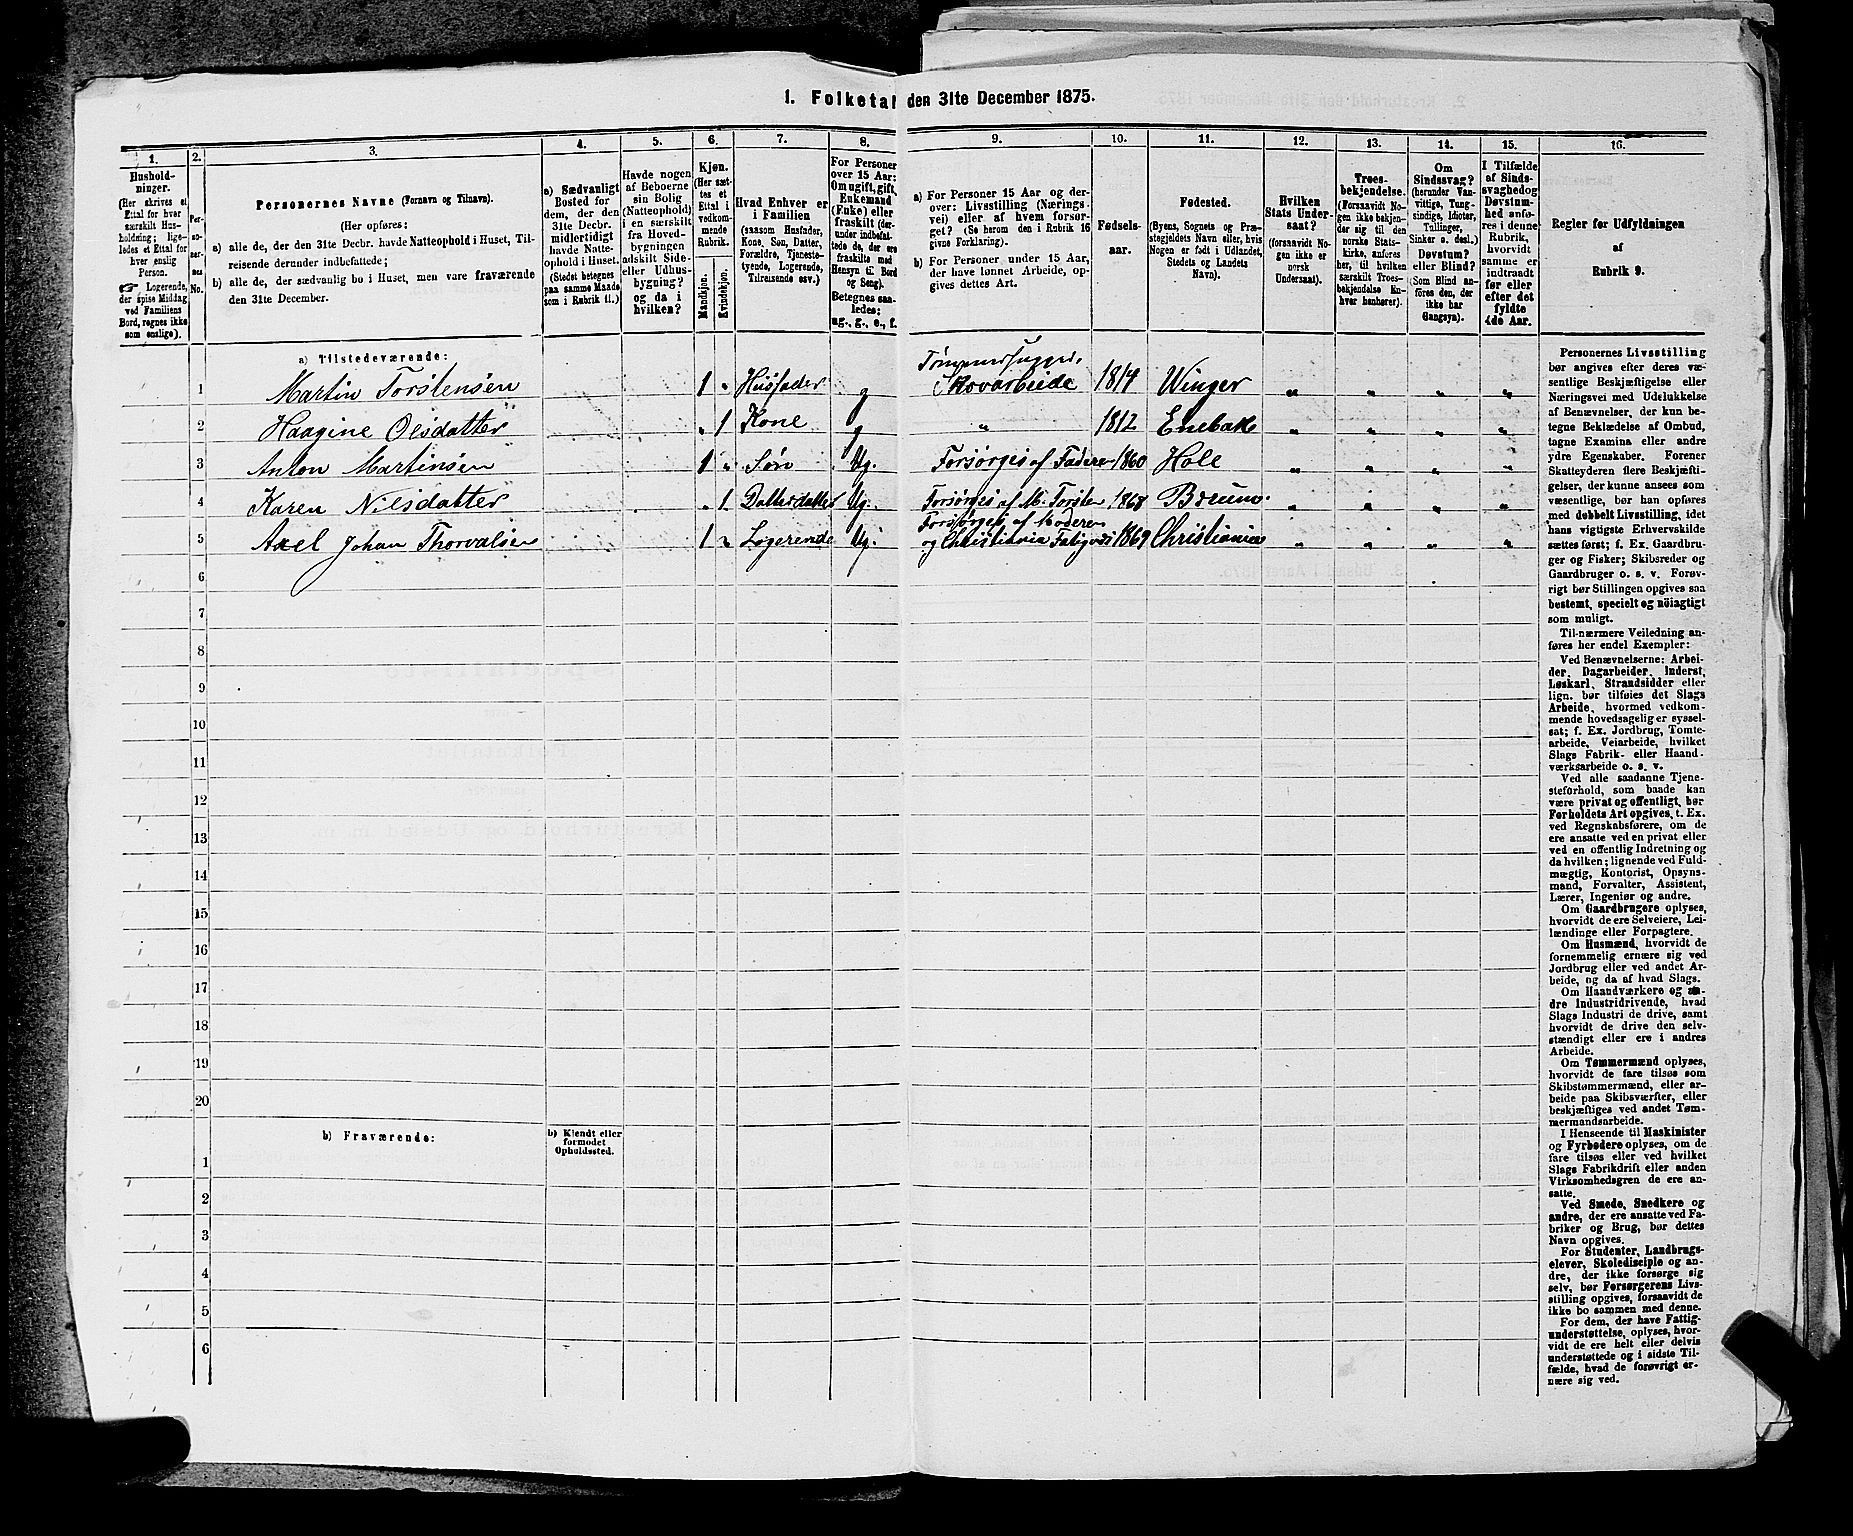 1. Folketal den 31te December 1875.
1.
Hushold-
ninger.
(Her skrives et
Ettal for hver
særskilt Hus-
holdning; lige-
ledes et Ettal for
hver enslig
Person.
☞ Logerende,
der spise Middag
ved Familiens
Bord, regnes ikke
som enslige).
2.
Per-
so-
ner-
nes
No.
3.
Personernes Navne (Fornavn og Tilnavn).
(Her opføres:
a) alle de, der den 31te Decbr. havde Natteophold i Huset, Til-
reisende derunder indbefattede;
b) alle de, der sædvanlig bo i Huset, men vare fraværende
den 31te December.
4.
a) Sædvanligt
Bosted for
dem, der den
31te Decbr.
midlertidigt
havde Natte-
ophold i Huset.
(Stedet betegnes
paa samme Maade
som i Rubrik 11.)
5.
Havde nogen
af Beboerne
sin Bolig
(Natteophold)
i en særskilt
fra Hoved-
bygningen
adskilt Side-
eller Udhus-
bygning?
og da i
hvilken?
6.
Kjøn.
(Her sæt-
tes et
Ettal i
vedkom-
mende
Rubrik.
Mandkjøn.
Kvindekjøn.
7.
Hvad Enhver er
i Familien
(saasom Husfader,
Kone, Søn, Datter,
Forældre, Tjeneste-
tyende, Logerende,
Tilreisende osv.)
8.
For Personer
over 15 Aar:
Om ugift, gift,
Enkemand
(Enke) eller
fraskilt (der-
under indbefat-
tede de, der ere
fraskilte med
Hensyn til Bord
og Seng).
Betegnes saa-
ledes:
ug., g., e., f.
9.
a) For Personer 15 Aar og der-
over: Livsstilling (Nærings-
vei) eller af hvem forsør-
get? (Se herom den i Rubrik 16
givne Forklaring).
b) For Personer under 15 Aar,
der have lønnet Arbeide, op-
gives dettes Art.
10.
Fødsels-
aar.
11.
Fødested.
(Byens, Sognets og Præ-
stegjeldets Navn eller, hvis
Nogen er født i Udlandet,
Stedets og Landets
Navn).
12.
Hvilken
Stats Under-
saat?
(forsaavidt No-
gen ikke er
norsk
Undersaat).
13.
Troes-
bekjendelse.
(Forsaavidt No-
gen ikke bekjen-
der sig til den
norske Stats-
kirke, anføres
her, til hvilken
særskilt Troes-
bekjendelse En-
hver henhører).
14.
Om
Sindssvag?
(herunder Van-
vittige, Tung-
sindige, Idioter,
Tullinger,
Sinker o. desl.)
Døvstum?
eller Blind?
(Som Blind an-
føres den, der
ikke har
Gangsyn).
15.
I Tilfælde
af Sinds-
svaghed og
Døvstum-
hed anfø-
res i denne
Rubrik,
hvorvidt
samme er
indtraadt
før eller
efter det
fyldte
4de Aar.
16.
Regler for Udfyldningen
af
Rubrik 9.
a) Tilstedeværende:
Tømmerhugger,
1 Martin Torstensen 1 „ Husfader g Skovarbeide 1814 Winger „ „ „ „
2 Haagine Olsdatter „ 1 Kone g „ 1812 Enebak „ „ „ „
3 Anton Martinsen 1 „ Søn Ug. Forsørges af Faderen 1860 Hole „ „ „ „
4 Karen Nilsdatter „ 1 Datterdatter Ug. Forsørges af M. Torsten. 1868 Brums „ „ „ „
Forsørges af Moderen
5 Axel Johan Thorvalsen 1 „ Logerende Ug. og Christiania Fatigvæs 1869 Christiania „ „ „ „
6
7
8
9
10
11
12
13
14
15
16
17
18
19
20
b) Fraværende:
b) Kjendt eller
formodet
Opholdssted.
1
2
3
4
5
6
Personernes Livsstilling
bør angives efter deres væ-
sentlige Beskjæftigelse eller
Næringsvei med Udelukkelse
af Benævnelser, der kun be-
tegne Beklædelse af Ombud,
tagne Examina eller andre
ydre Egenskaber. Forener
Skatteyderen flere Beskjæfti-
gelser, der kunne ansees som
væsentlige, bør han opføres
med dobbelt Livsstilling, idet
hans vigtigste Erhvervskilde
sættes først; f. Ex. Gaardbru-
ger og Fisker; Skibsreder og
Gaardbruger o. s. v. Forøv-
rigt bør Stillingen opgives saa
bestemt, specielt og nöiagtigt
som muligt.
Til nærmere Veiledning an-
føres her endel Exempler:
Ved Benævnelserne: Arbei-
der, Dagarbeider, Inderst,
Løskarl, Strandsidder eller
lign. bør tilføies det Slags
Arbeide, hvormed vedkom-
mende hovedsagelig er syssel-
sat; f. Ex. Jordbrug, Tomte-
arbeide, Veiarbeide, hvilket
Slags Fabrik- eller Haand-
værksarbeide o. s. v.
Ved alle saadanne Tjene-
steforhold, som baade kan
være privat og offentligt, bør
Forholdets Art opgives, t. Ex.
ved Regnskabsførere, om de
ere ansatte ved en privat eller
ved en offentlig Indretning og
da hvilken; lignende ved Fuld-
mægtig, Kontorist, Opsyns-
mand, Forvalter, Assistent,
Lærer, Ingeniør og andre.
Om Gaardbrugere oplyses,
hvorvidt de ere Selveiere, Lei-
lændinge eller Forpagtere.
Om Husmænd, hvorvidt de
fornemmelig ernære sig ved
Jordbrug eller ved andet Ar-
beide, og da af hvad Slags.
Om Haandværkere og an-
dre Industridrivende, hvad
Slags Industri de drive, samt
hvorvidt de drive den selv-
stændigt eller ere i andres
Arbeide.
Om Tømmermænd oplyses,
hvorvidt de fare tilsøs som
Skibstømmermænd, eller ar-
beide paa Skibsværfter, eller
beskjæftiges ved andet Tøm-
mermandsarbeide.
I Henseende til Maskinister
og Fyrbødere oplyses, om de
fare tilsøs eller ved hvilket
Slags Fabrikdrift eller anden
Virksomhedsgren de ere an-
satte.
Ved Smede, Snedkere og
andre, der ere ansatte ved Fa-
briker og Brug, bør dettes
Navn opgives.
For Studenter, Landbrugs-
elever, Skoledisciple og an-
dre, der ikke forsørge sig
selv, bør Forsørgerens Livs-
stilling opgives, forsaavidt de
ikke bo sammen med denne.
For dem, der have Fattig-
understøttelse, oplyses, hvor-
vidt de ere helt eller delvis
understøttede og i sidste Til-
fælde, hvad de forøvrigt er-
nære sig ved.